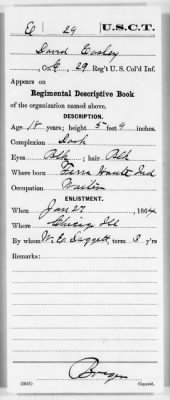 E 29 U.S.C.T.
David Cosley
, Co. E, 29 Reg't U. S. Col'd Inf.
Appears on
Regimental Descriptive Book
of the organization named above.
DESCRIPTION.
Age 18 years; height 5 feet 9 inches.
Complexion Dark
Eyes Blk ; hair Blk
Where born Terre Haute Ind
Occupation Waiter
ENLISTMENT.
When Jan 27 , 1864.
Where Chicago Ill
By whom W. C. Daggett, term 3 y'rs
Remarks:
Copyist.